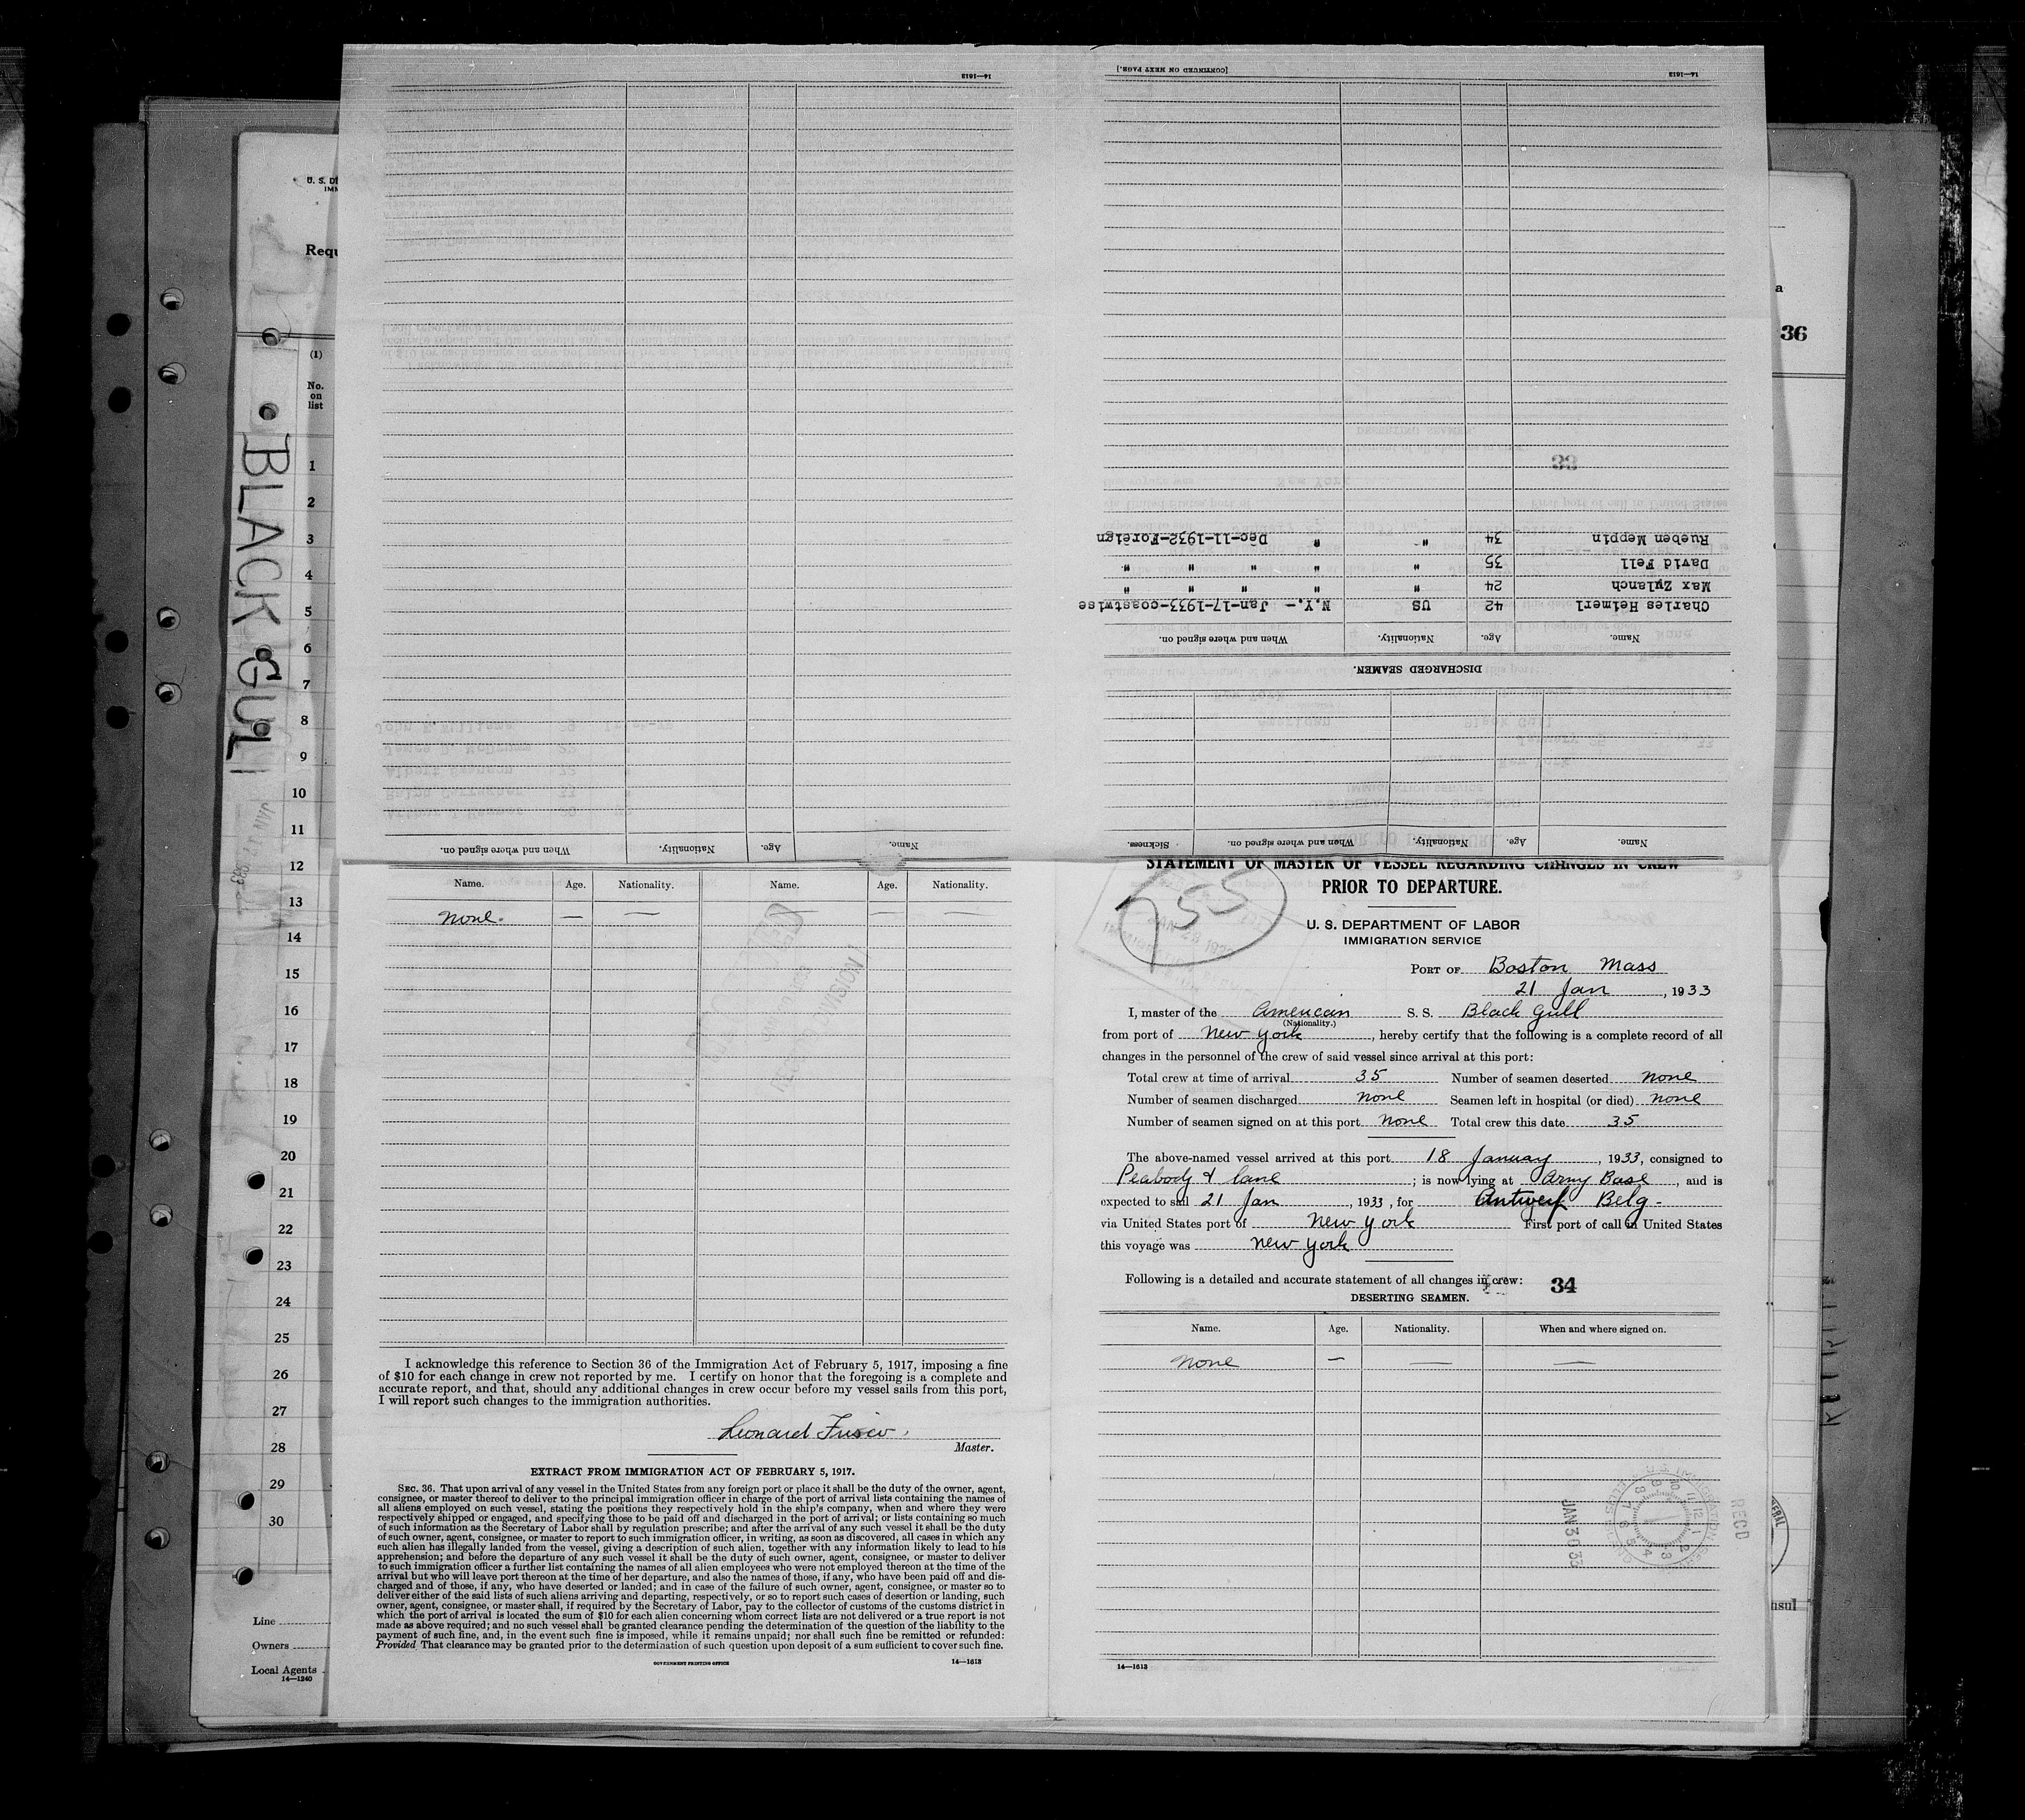 14—1613
[CONTINUED ON NEXT PAGE.]
14—1613
Name. Age. Nationality. When and where signed on.
Name. Age. Nationality. When and where signed on. Sickness.
DISCHARGED SEAMEN.
Name. Age. Nationality. When and where signed on.
Charles Heimerl 42 US N.Y.- Jan-17-1933-coastwise
Max Zylanch 24 " " " " "
David Fell 35 " " " " "
Rueben Meppin 34 " " Dec-11-1932-Foreign
33
Requ
(1)
No.
on
list
BLACK GULL
1
2
3
4
5
6
7
8
9
10
11
12
13
14
15
16
17
18
19
20
21
22
23
24
25
26
27
28
29
30
Line
Owners
Local Agents
14—1240
36
Name. Age. Nationality. Name. Age. Nationality.
None. — — — — —
I acknowledge this reference to Section 36 of the Immigration Act of February 5, 1917, imposing a fine
of $10 for each change in crew not reported by me. I certify on honor that the foregoing is a complete and
accurate report, and that, should any additional changes in crew occur before my vessel sails from this port,
I will report such changes to the immigration authorities.
Leonard Frisco.
Master.
EXTRACT FROM IMMIGRATION ACT OF FEBRUARY 5, 1917.
SEC. 36. That upon arrival of any vessel in the United States from any foreign port or place it shall be the duty of the owner, agent,
consignee, or master thereof to deliver to the principal immigration officer in charge of the port of arrival lists containing the names of
all aliens employed on such vessel, stating the positions they respectively hold in the ship's company, when and where they were
respectively shipped or engaged, and specifying those to be paid off and discharged in the port of arrival; or lists containing so much
of such information as the Secretary of Labor shall by regulation prescribe; and after the arrival of any such vessel it shall be the duty
of such owner, agent, consignee, or master to report to such immigration officer, in writing, as soon as discovered, all cases in which any
such alien has illegally landed from the vessel, giving a description of such alien, together with any information likely to lead to his
apprehension; and before the departure of any such vessel it shall be the duty of such owner, agent, consignee, or master to deliver
to such immigration officer a further list containing the names of all alien employees who were not employed thereon at the time of the
arrival but who will leave port thereon at the time of her departure, and also the names of those, if any, who have been paid off and dis-
charged and of those, if any, who have deserted or landed; and in case of the failure of such owner, agent, consignee, or master so to
deliver either of the said lists of such aliens arriving and departing, respectively, or so to report such cases of desertion or landing, such
owner, agent, consignee, or master shall, if required by the Secretary of Labor, pay to the collector of customs of the customs district in
which the port of arrival is located the sum of $10 for each alien concerning whom correct lists are not delivered or a true report is not
made as above required; and no such vessel shall be granted clearance pending the determination of the question of the liability to the
payment of such fine, and, in the event such fine is imposed, while it remains unpaid; nor shall such fine be remitted or refunded:
Provided That clearance may be granted prior to the determination of such question upon deposit of a sum sufficient to cover such fine.
GOVERNMENT PRINTING OFFICE
14—1613
STATEMENT OF MASTER OF VESSEL REGARDING CHANGES IN CREW
PRIOR TO DEPARTURE.
755
U. S. DEPARTMENT OF LABOR
IMMIGRATION SERVICE
PORT OF Boston Mass
21 Jan, 1933
I, master of the American S. S. Black Gull
(Nationality.)
from port of New York, hereby certify that the following is a complete record of all
changes in the personnel of the crew of said vessel since arrival at this port:
Total crew at time of arrival 35 Number of seamen deserted None
Number of seamen discharged None Seamen left in hospital (or died) None
Number of seamen signed on at this port None Total crew this date 35
The above-named vessel arrived at this port 18 January, 1933, consigned to
Peabody & Lane; is now lying at Army Base, and is
expected to sail 21 Jan, 1933, for Antwerp Belg-
via United States port of New York First port of call in United States
this voyage was New York
Following is a detailed and accurate statement of all changes in crew: 34
DESERTING SEAMEN.
Name. Age. Nationality. When and where signed on.
None — — —
RECD
JAN 30 33
14—1613